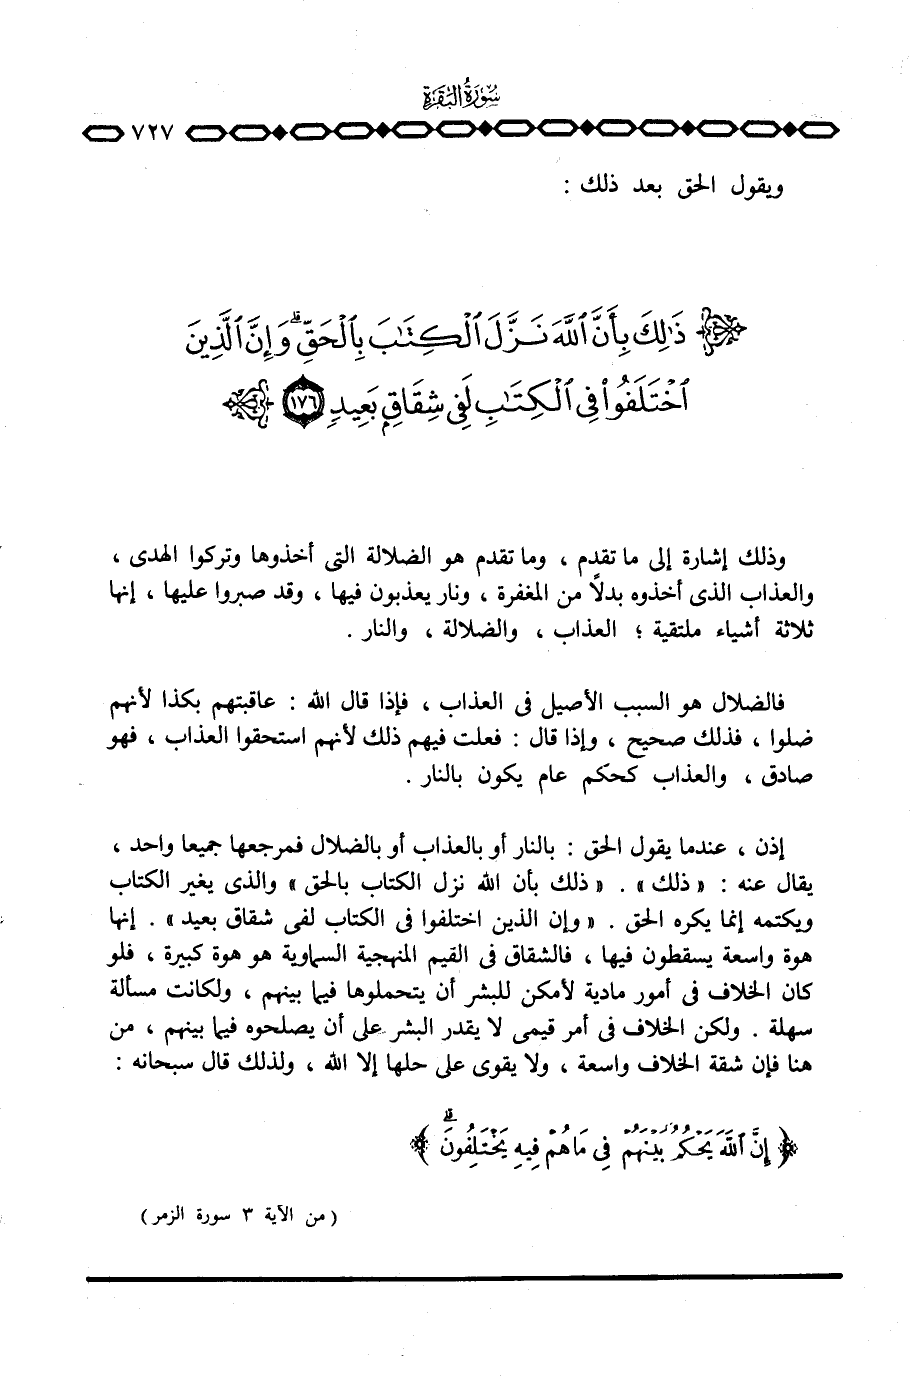 سُورَةُ البَقَرَةِ
٧٢٧
ويقول الحق بعد ذلك :
ذَٰلِكَ بِأَنَّ ٱللَّهَ نَزَّلَ ٱلْكِتَٰبَ بِٱلْحَقِّۗ وَإِنَّ ٱلَّذِينَ
ٱخْتَلَفُوا۟ فِى ٱلْكِتَٰبِ لَفِى شِقَاقٍۭ بَعِيدٍ ١٧٦
وذلك إشارة إلى ما تقدم ، وما تقدم هو الضلالة التى أخذوها وتركوا الهدى ،
والعذاب الذى أخذوه بدلاً من المغفرة ، ونار يعذبون فيها ، وقد صبروا عليها ، إنها
ثلاثة أشياء ملتقية ؛ العذاب ، والضلالة ، والنار .
فالضلال هو السبب الأصيل فى العذاب ، فإذا قال الله : عاقبتهم بكذا لأنهم
ضلوا ، فذلك صحيح ، وإذا قال : فعلت فيهم ذلك لأنهم استحقوا العذاب ، فهو
صادق ، والعذاب كحكم عام يكون بالنار .
إذن ، عندما يقول الحق : بالنار أو بالعذاب أو بالضلال فمرجعها جميعا واحد ،
يقال عنه : « ذلك » . « ذلك بأن الله نزل الكتاب بالحق » والذى يغير الكتاب
ويكتمه إنما يكره الحق . « وإن الذين اختلفوا فى الكتاب لفى شقاق بعيد » . إنها
هوة واسعة يسقطون فيها ، فالشقاق فى القيم المنهجية السماوية هو هوة كبيرة ، فلو
كان الخلاف فى أمور مادية لأمكن للبشر أن يتحملوها فيما بينهم ، ولكانت مسألة
سهلة . ولكن الخلاف فى أمر قيمى لا يقدر البشر على أن يصلحوه فيما بينهم ، من
هنا فإن شقة الخلاف واسعة ، ولا يقوى على حلها إلا الله ، ولذلك قال سبحانه :
﴿ إِنَّ ٱللَّهَ يَحْكُمُ بَيْنَهُمْ فِى مَا هُمْ فِيهِ يَخْتَلِفُونَۗ ﴾
( من الآية ٣ سورة الزمر )